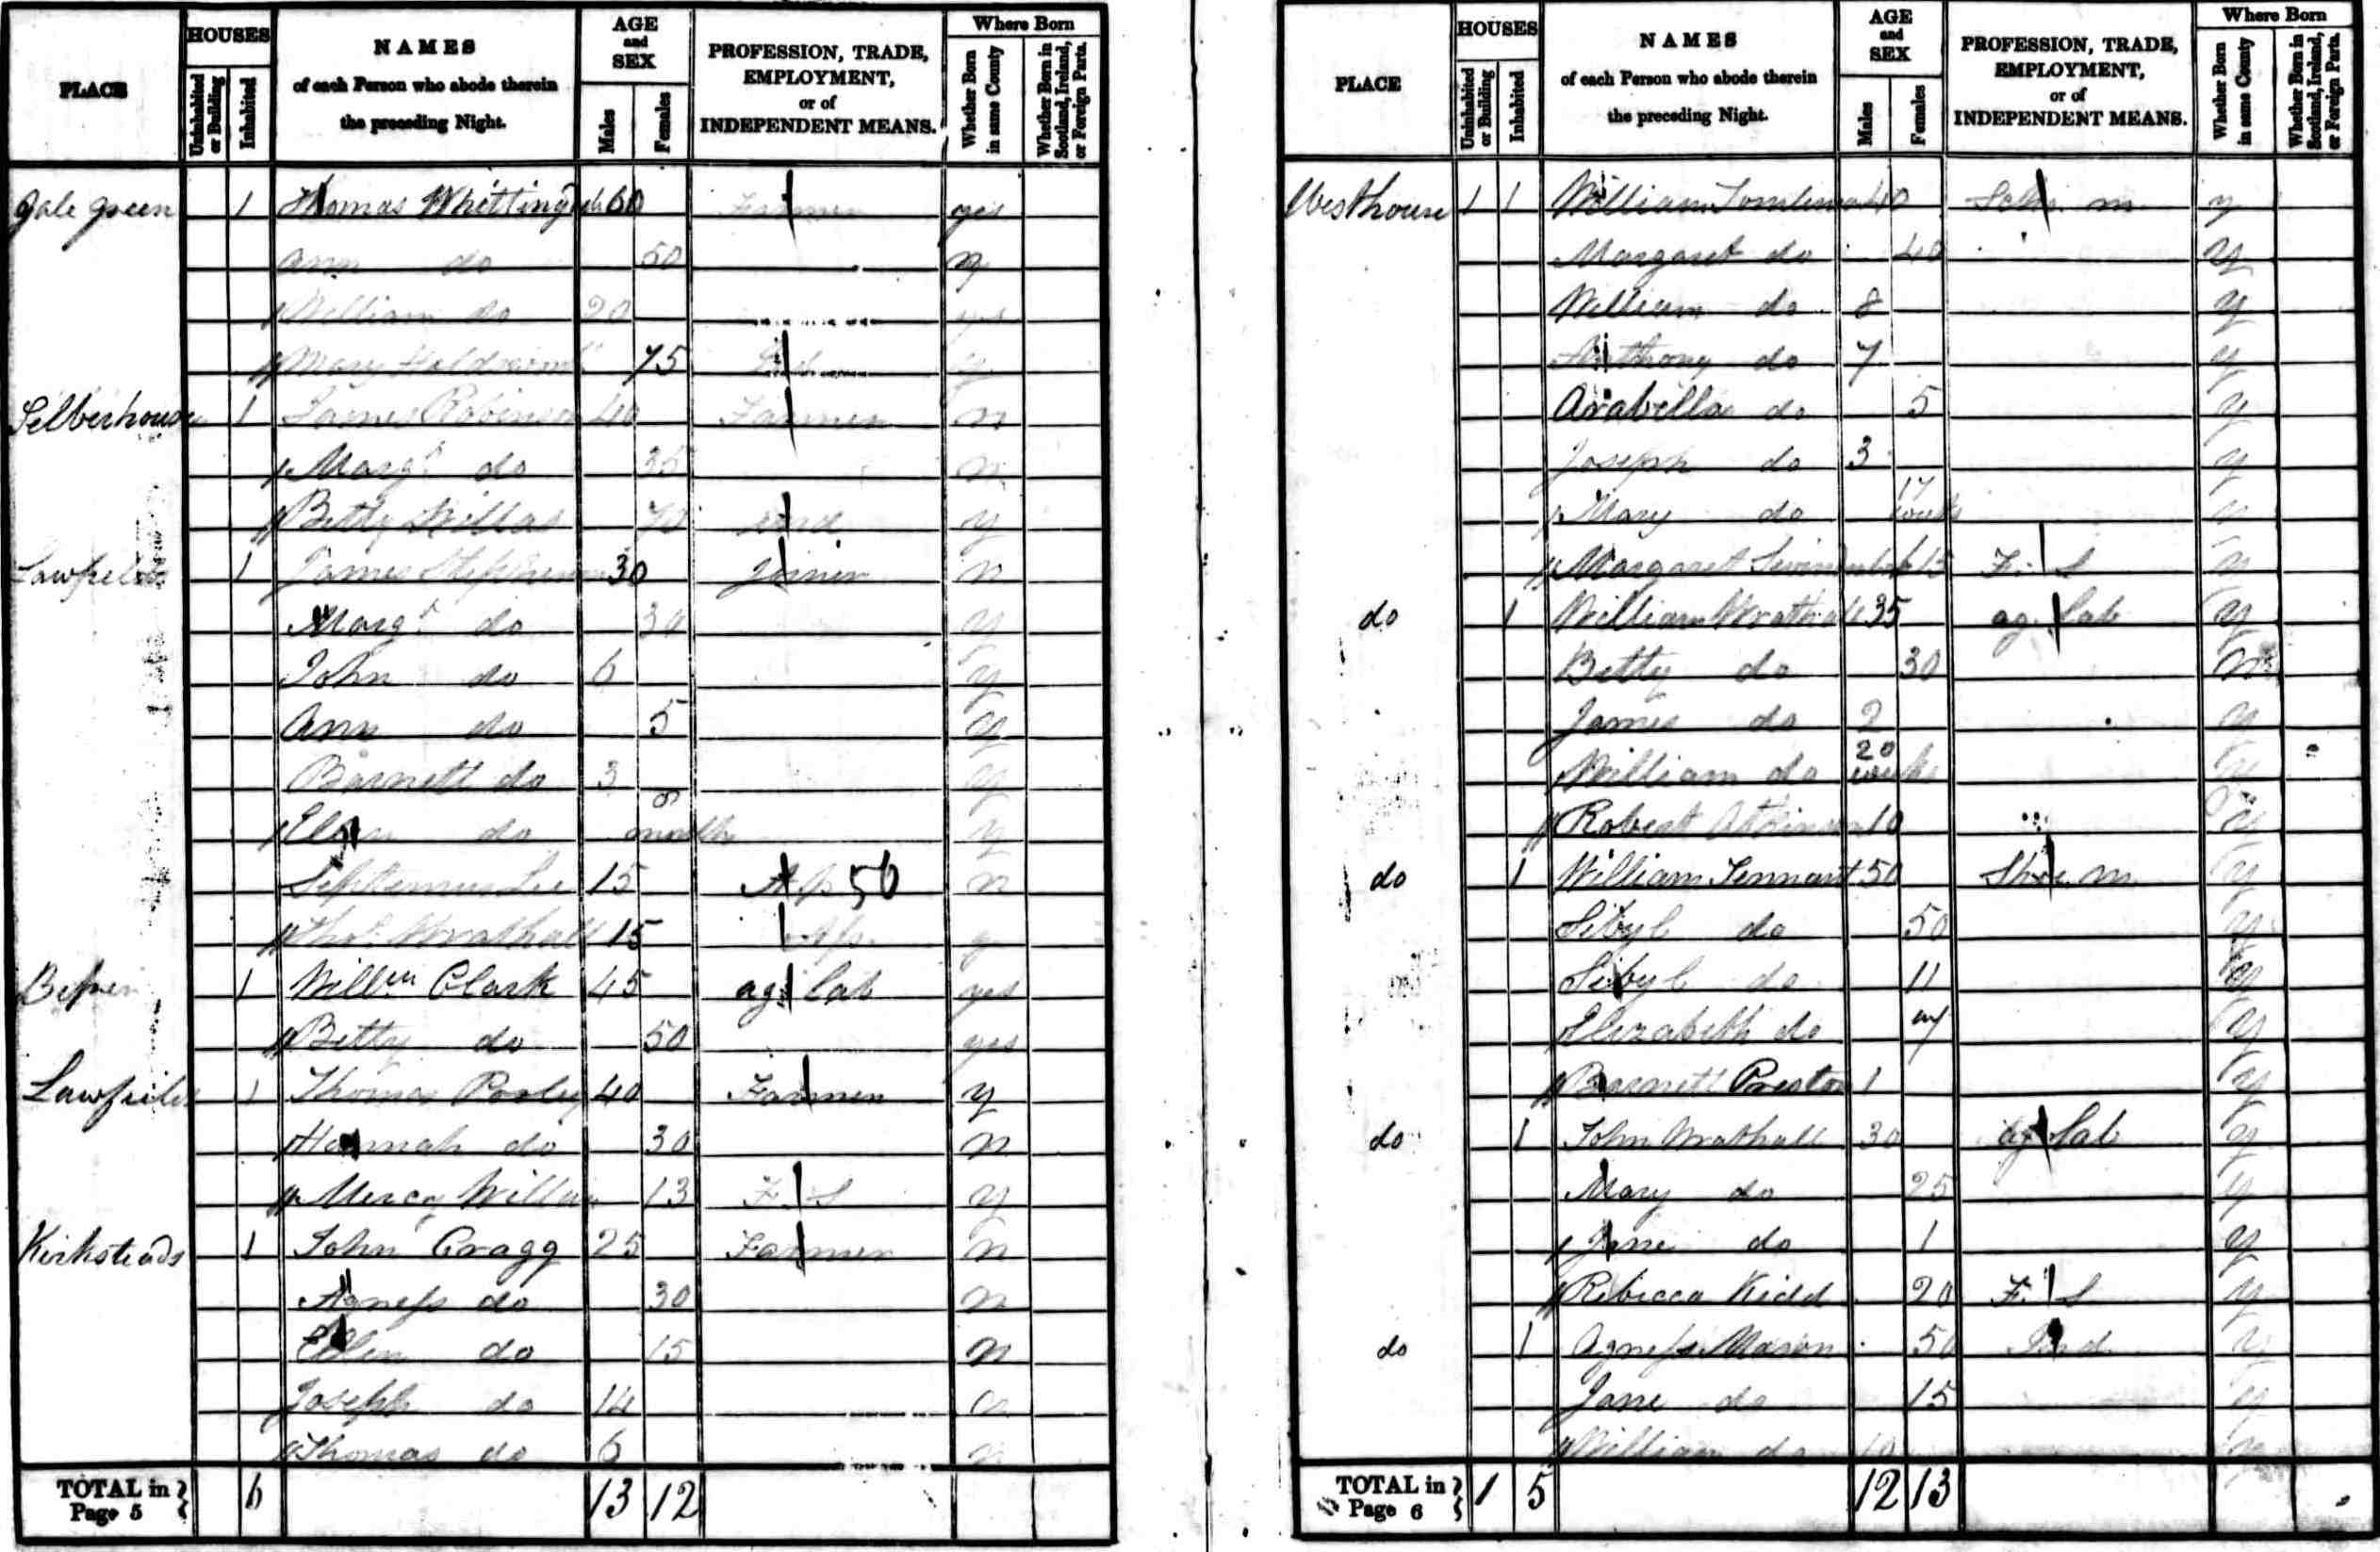 PLACE HOUSES Uninhabited or Building Inhabited NAMES of each Person who abode therein the preceding Night. AGE and SEX Males Females PROFESSION, TRADE, EMPLOYMENT, or of INDEPENDENT MEANS. Where Born Whether Born in same County Whether Born in Scotland, Ireland, or Foreign Parts.
Gale green 1 Thomas 60 Farmer yes
Ann do 50 n
William do 20 yes
Mary 75
1 James Robinson 40 Farmer n
Margt do 35 n
Betty Willas 70 ind y
1 James 30 Joiner n
Margt do 30 y
John do 6 y
Ann do 5 y
Barnett do 3 y
do 8 months y
Septemus Lee 15 Ap 56 n
Thos Wrathall 15 Ap y
1 Willm Clark 45 ag lab yes
Betty do 50 yes
1 Thomas 40 Farmer y
Hannah do 30 n
Mercy 13 F S y
Kirksteads 1 John Cragg 25 Farmer n
Agness do 30 n
Ellen do 15 n
Joseph do 14 n
Thomas do 6 n
TOTAL in Page 5 6 13 12
PLACE HOUSES Uninhabited or Building Inhabited NAMES of each Person who abode therein the preceding Night. AGE and SEX Males Females PROFESSION, TRADE, EMPLOYMENT, or of INDEPENDENT MEANS. Where Born Whether Born in same County Whether Born in Scotland, Ireland, or Foreign Parts.
Westhouse 1 1 William Tomlinson 40 m y
Margaret do 40 y
William do 8 y
Anthony do 7 y
Arabella do 5 y
Joseph do 3 y
Mary do 17 weeks y
Margaret 15 F. S y
do 1 William Wrathall 35 ag. lab y
Betty do 30 n
James do 2 y
William do 20 weeks y
Robert Atkinson 10 y
do 1 William Tennant 50 Shoe m y
Sibyl do 50 y
Sibyl do 11 y
Elizabeth do 7 y
Barnett Preston 1 y
do 1 John Wrathall 30 ag lab y
Mary do 25 y
Jane do 1 y
Ribecca Kidd 20 F. S y
do 1 Agness Mason 50 Ind y
Jane do 15 y
William do 10 y
TOTAL in Page 6 1 5 12 13